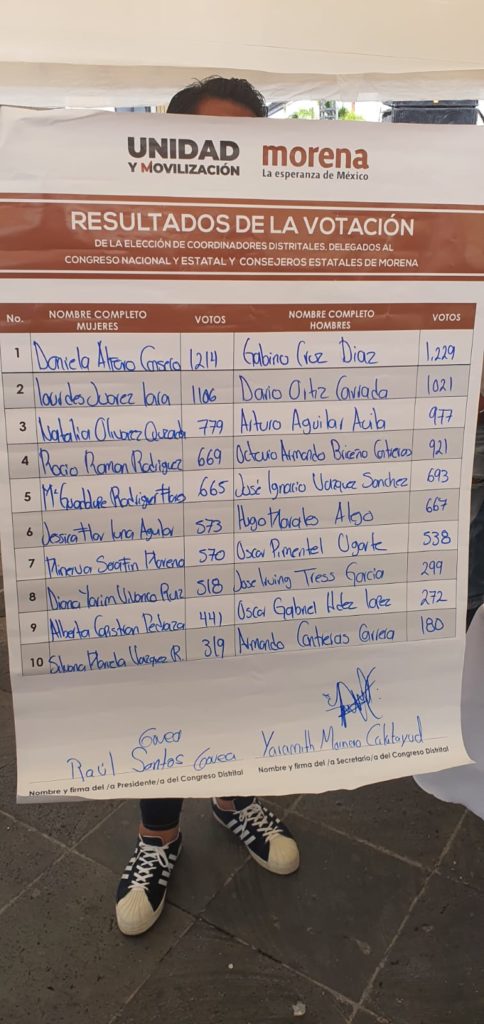 UNIDAD
Y MOVILIZACIÓN
morena
La esperanza de México
RESULTADOS DE LA VOTACIÓN
DE LA ELECCIÓN DE COORDINADORES DISTRITALES, DELEGADOS AL
CONGRESO NACIONAL Y ESTATAL Y CONSEJEROS ESTATALES DE MORENA
No. NOMBRE COMPLETO MUJERES VOTOS NOMBRE COMPLETO HOMBRES VOTOS
1 Daniela 1214 Gabino Cruz Diaz 1,229
2 Lourdes Juarez Lara 1106 Dario Ortiz 1021
3 Natalia Olivarez 779 Arturo Aguilar 977
4 Rocio Ramon Rodriguez 669 Octavio Armando Briceño Contreras 921
5 Ma Guadalupe Rodriguez 665 José Ignacio Vazquez Sanchez 693
6 Jessica Flor Luna Aguilar 573 Hugo Morales 667
7 Minerva Serafin Moreno 570 Oscar Pimentel Ugarte 538
8 Diana Yarim Vivanco Ruiz 518 Jose Irving Tress Garcia 299
9 Alberta Cristian Pedraza 441 Oscar Gabriel Hdez Lopez 272
10 Silvana Vazquez R. 319 Armando Contreras 180
Govea
Raúl Santos Govea
Yaramith
Nombre y firma del /a Presidente/a del Congreso Distrital
Nombre y firma del /a Secretario/a del Congreso Distrital